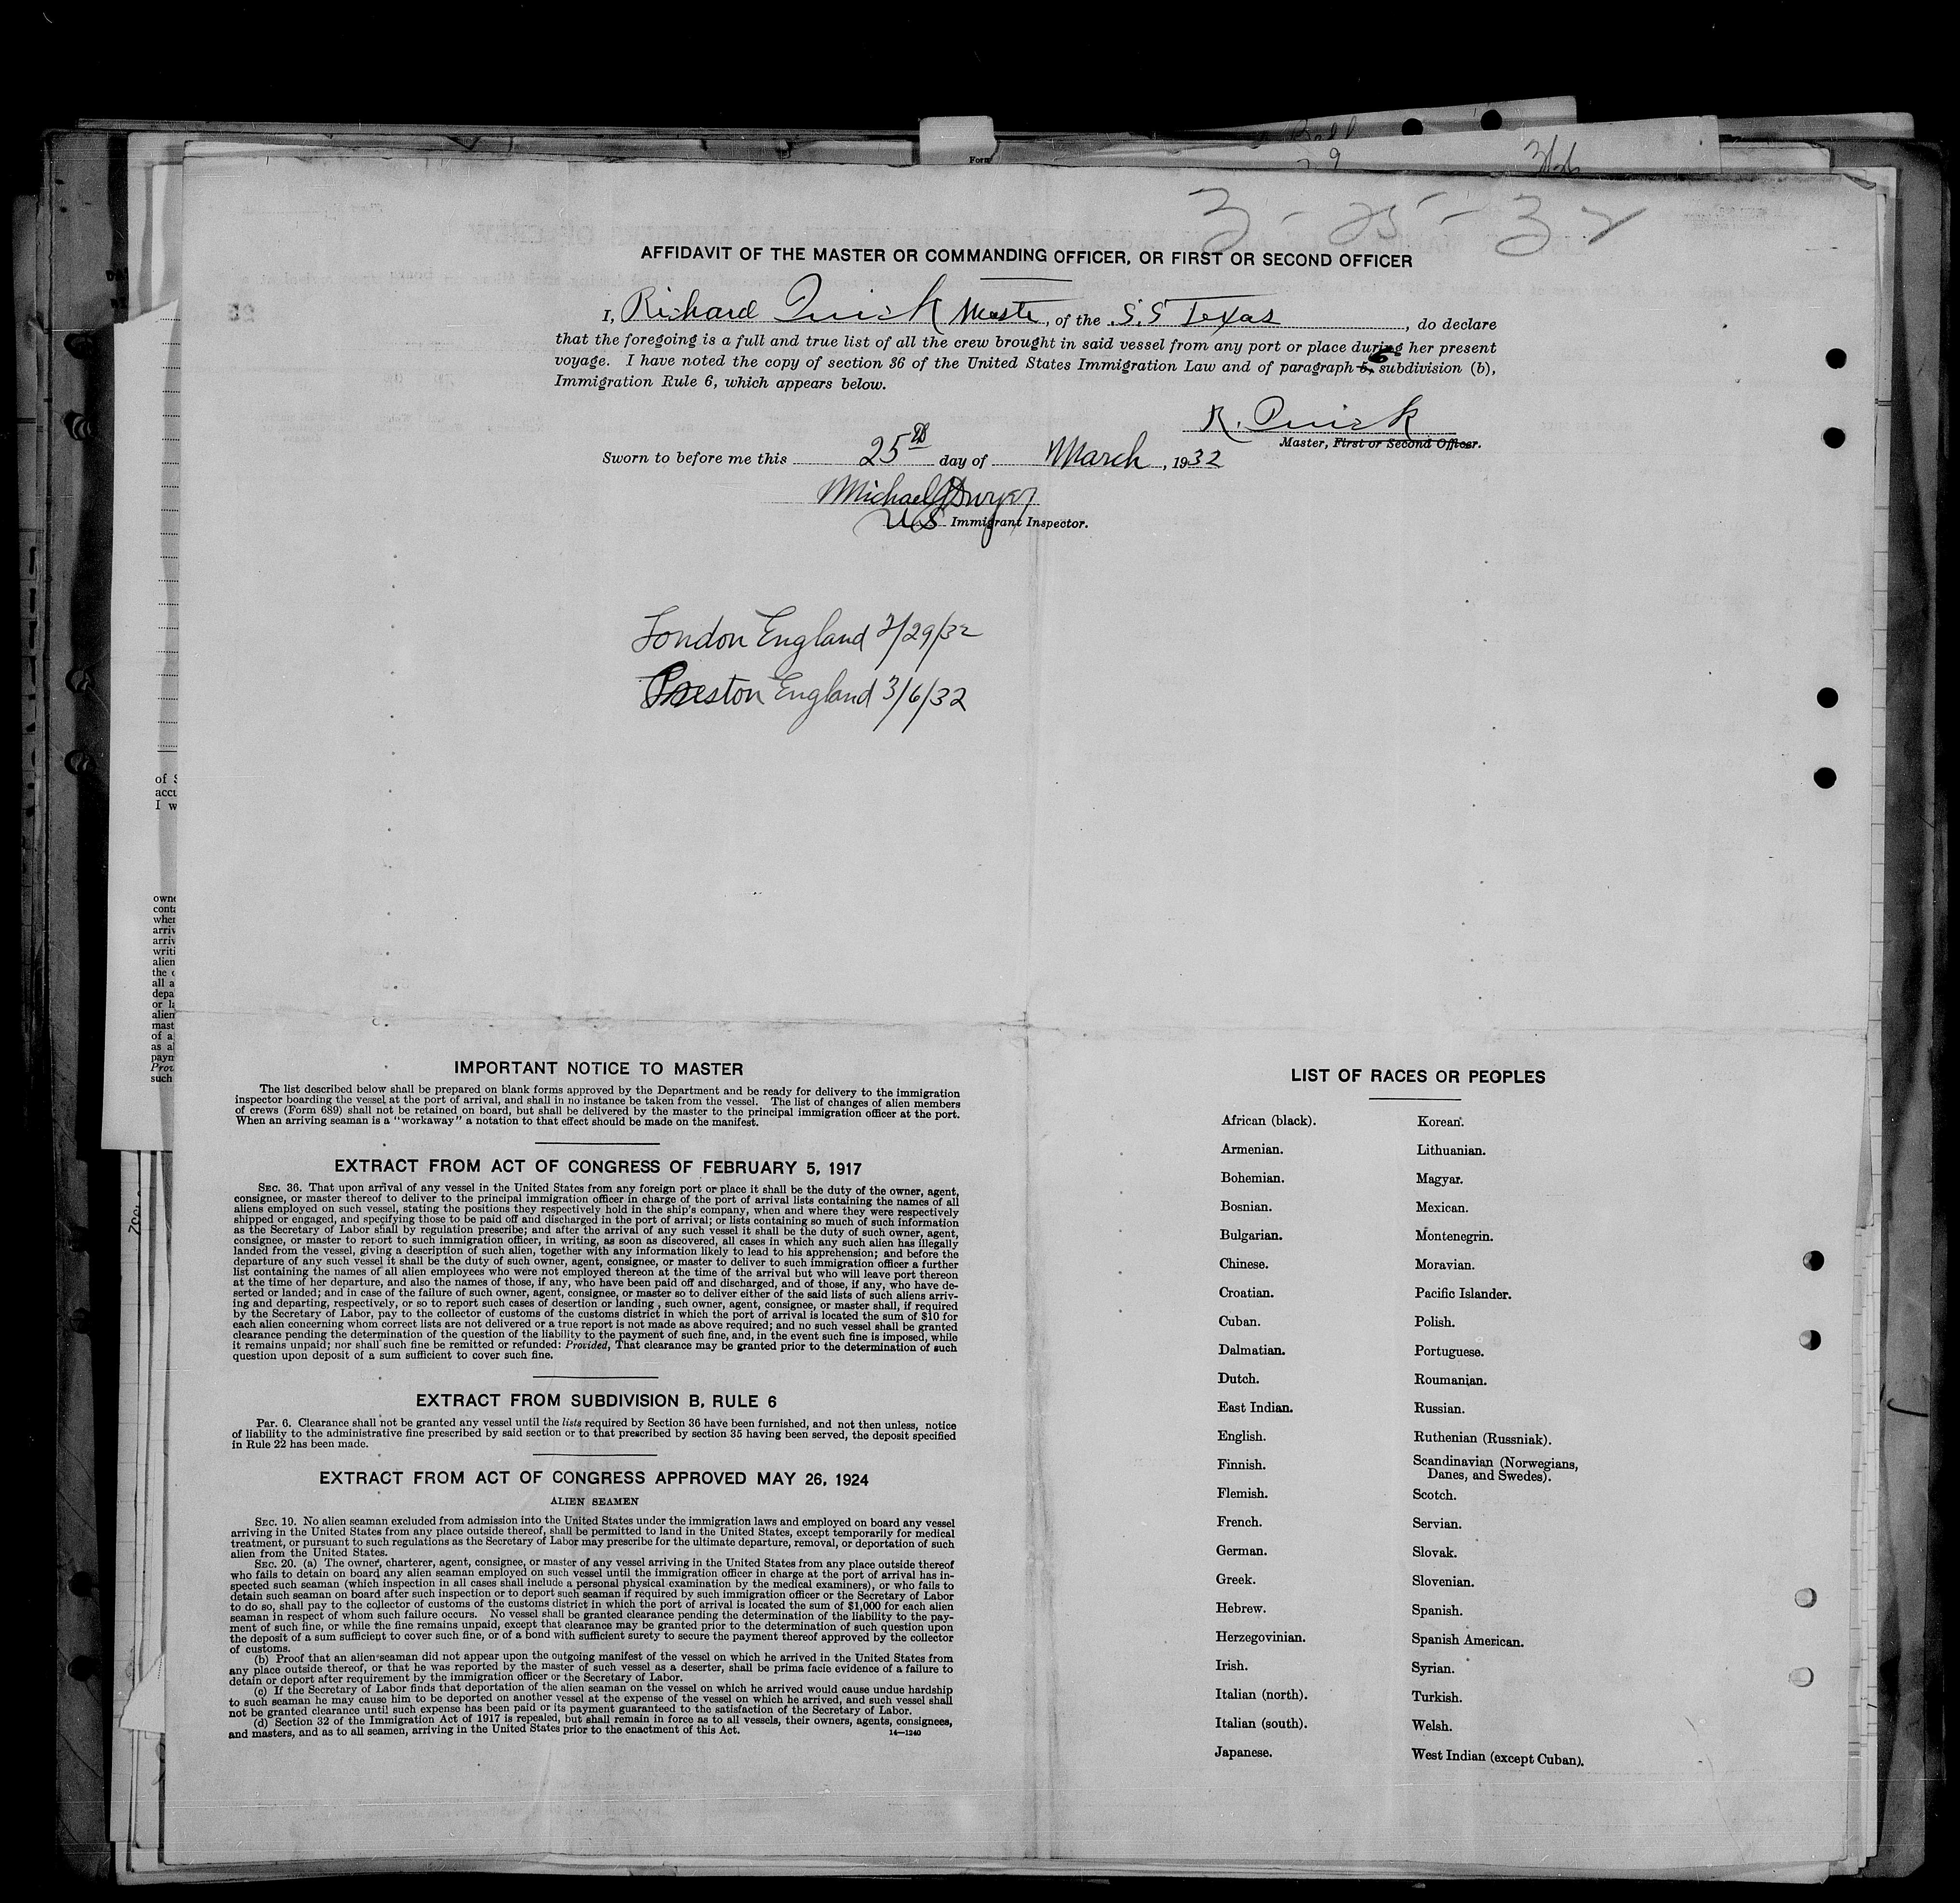 Form
3-25-32
AFFIDAVIT OF THE MASTER OR COMMANDING OFFICER, OR FIRST OR SECOND OFFICER
I, Richard Quick Master, of the S.S Texas, do declare
that the foregoing is a full and true list of all the crew brought in said vessel from any port or place during her present
voyage. I have noted the copy of section 36 of the United States Immigration Law and of paragraph 5, 6 subdivision (b),
Immigration Rule 6, which appears below.
R. Quick
Master, First or Second Officer.
Sworn to before me this 25th day of March, 1932
Michael J Dwyer
US Immigrant Inspector.
London England 2/29/32
Preston England 3/6/32
IMPORTANT NOTICE TO MASTER
The list described below shall be prepared on blank forms approved by the Department and be ready for delivery to the immigration
inspector boarding the vessel at the port of arrival, and shall in no instance be taken from the vessel. The list of changes of alien members
of crews (Form 689) shall not be retained on board, but shall be delivered by the master to the principal immigration officer at the port.
When an arriving seaman is a "workaway" a notation to that effect should be made on the manifest.
EXTRACT FROM ACT OF CONGRESS OF FEBRUARY 5, 1917
SEC. 36. That upon arrival of any vessel in the United States from any foreign port or place it shall be the duty of the owner, agent,
consignee, or master thereof to deliver to the principal immigration officer in charge of the port of arrival lists containing the names of all
aliens employed on such vessel, stating the positions they respectively hold in the ship's company, when and where they were respectively
shipped or engaged, and specifying those to be paid off and discharged in the port of arrival; or lists containing so much of such information
as the Secretary of Labor shall by regulation prescribe; and after the arrival of any such vessel it shall be the duty of such owner, agent,
consignee, or master to report to such immigration officer, in writing, as soon as discovered, all cases in which any such alien has illegally
landed from the vessel, giving a description of such alien, together with any information likely to lead to his apprehension; and before the
departure of any such vessel it shall be the duty of such owner, agent, consignee, or master to deliver to such immigration officer a further
list containing the names of all alien employees who were not employed thereon at the time of the arrival but who will leave port thereon
at the time of her departure, and also the names of those, if any, who have been paid off and discharged, and of those, if any, who have de-
serted or landed; and in case of the failure of such owner, agent, consignee, or master so to deliver either of the said lists of such aliens arriv-
ing and departing, respectively, or so to report such cases of desertion or landing, such owner, agent, consignee, or master shall, if required
by the Secretary of Labor, pay to the collector of customs of the customs district in which the port of arrival is located the sum of $10 for
each alien concerning whom correct lists are not delivered or a true report is not made as above required; and no such vessel shall be granted
clearance pending the determination of the question of the liability to the payment of such fine, and, in the event such fine is imposed, while
it remains unpaid; nor shall such fine be remitted or refunded: Provided, That clearance may be granted prior to the determination of such
question upon deposit of a sum sufficient to cover such fine.
EXTRACT FROM SUBDIVISION B, RULE 6
Par. 6. Clearance shall not be granted any vessel until the lists required by Section 36 have been furnished, and not then unless, notice
of liability to the administrative fine prescribed by said section or to that prescribed by section 35 having been served, the deposit specified
in Rule 22 has been made.
EXTRACT FROM ACT OF CONGRESS APPROVED MAY 26, 1924
ALIEN SEAMEN
SEC. 19. No alien seaman excluded from admission into the United States under the immigration laws and employed on board any vessel
arriving in the United States from any place outside thereof, shall be permitted to land in the United States, except temporarily for medical
treatment, or pursuant to such regulations as the Secretary of Labor may prescribe for the ultimate departure, removal, or deportation of such
alien from the United States.
SEC. 20. (a) The owner, charterer, agent, consignee, or master of any vessel arriving in the United States from any place outside thereof
who fails to detain on board any alien seaman employed on such vessel until the immigration officer in charge at the port of arrival has in-
spected such seaman (which inspection in all cases shall include a personal physical examination by the medical examiners), or who fails to
detain such seaman on board after such inspection or to deport such seaman if required by such immigration officer or the Secretary of Labor
to do so, shall pay to the collector of customs of the customs district in which the port of arrival is located the sum of $1,000 for each alien
seaman in respect of whom such failure occurs. No vessel shall be granted clearance pending the determination of the liability to the pay-
ment of such fine, or while the fine remains unpaid, except that clearance may be granted prior to the determination of such question upon
the deposit of a sum sufficient to cover such fine, or of a bond with sufficient surety to secure the payment thereof approved by the collector
of customs.
(b) Proof that an alien seaman did not appear upon the outgoing manifest of the vessel on which he arrived in the United States from
any place outside thereof, or that he was reported by the master of such vessel as a deserter, shall be prima facie evidence of a failure to
detain or deport after requirement by the immigration officer or the Secretary of Labor.
(c) If the Secretary of Labor finds that deportation of the alien seaman on the vessel on which he arrived would cause undue hardship
to such seaman he may cause him to be deported on another vessel at the expense of the vessel on which he arrived, and such vessel shall
not be granted clearance until such expense has been paid or its payment guaranteed to the satisfaction of the Secretary of Labor.
(d) Section 32 of the Immigration Act of 1917 is repealed, but shall remain in force as to all vessels, their owners, agents, consignees,
and masters, and as to all seamen, arriving in the United States prior to the enactment of this Act.
14—1240
LIST OF RACES OR PEOPLES
African (black).
Armenian.
Bohemian.
Bosnian.
Bulgarian.
Chinese.
Croatian.
Cuban.
Dalmatian.
Dutch.
East Indian.
English.
Finnish.
Flemish.
French.
German.
Greek.
Hebrew.
Herzegovinian.
Irish.
Italian (north).
Italian (south).
Japanese.
Korean.
Lithuanian.
Magyar.
Mexican.
Montenegrin.
Moravian.
Pacific Islander.
Polish.
Portuguese.
Roumanian.
Russian.
Ruthenian (Russniak).
Scandinavian (Norwegians,
Danes, and Swedes).
Scotch.
Servian.
Slovak.
Slovenian.
Spanish.
Spanish American.
Syrian.
Turkish.
Welsh.
West Indian (except Cuban).